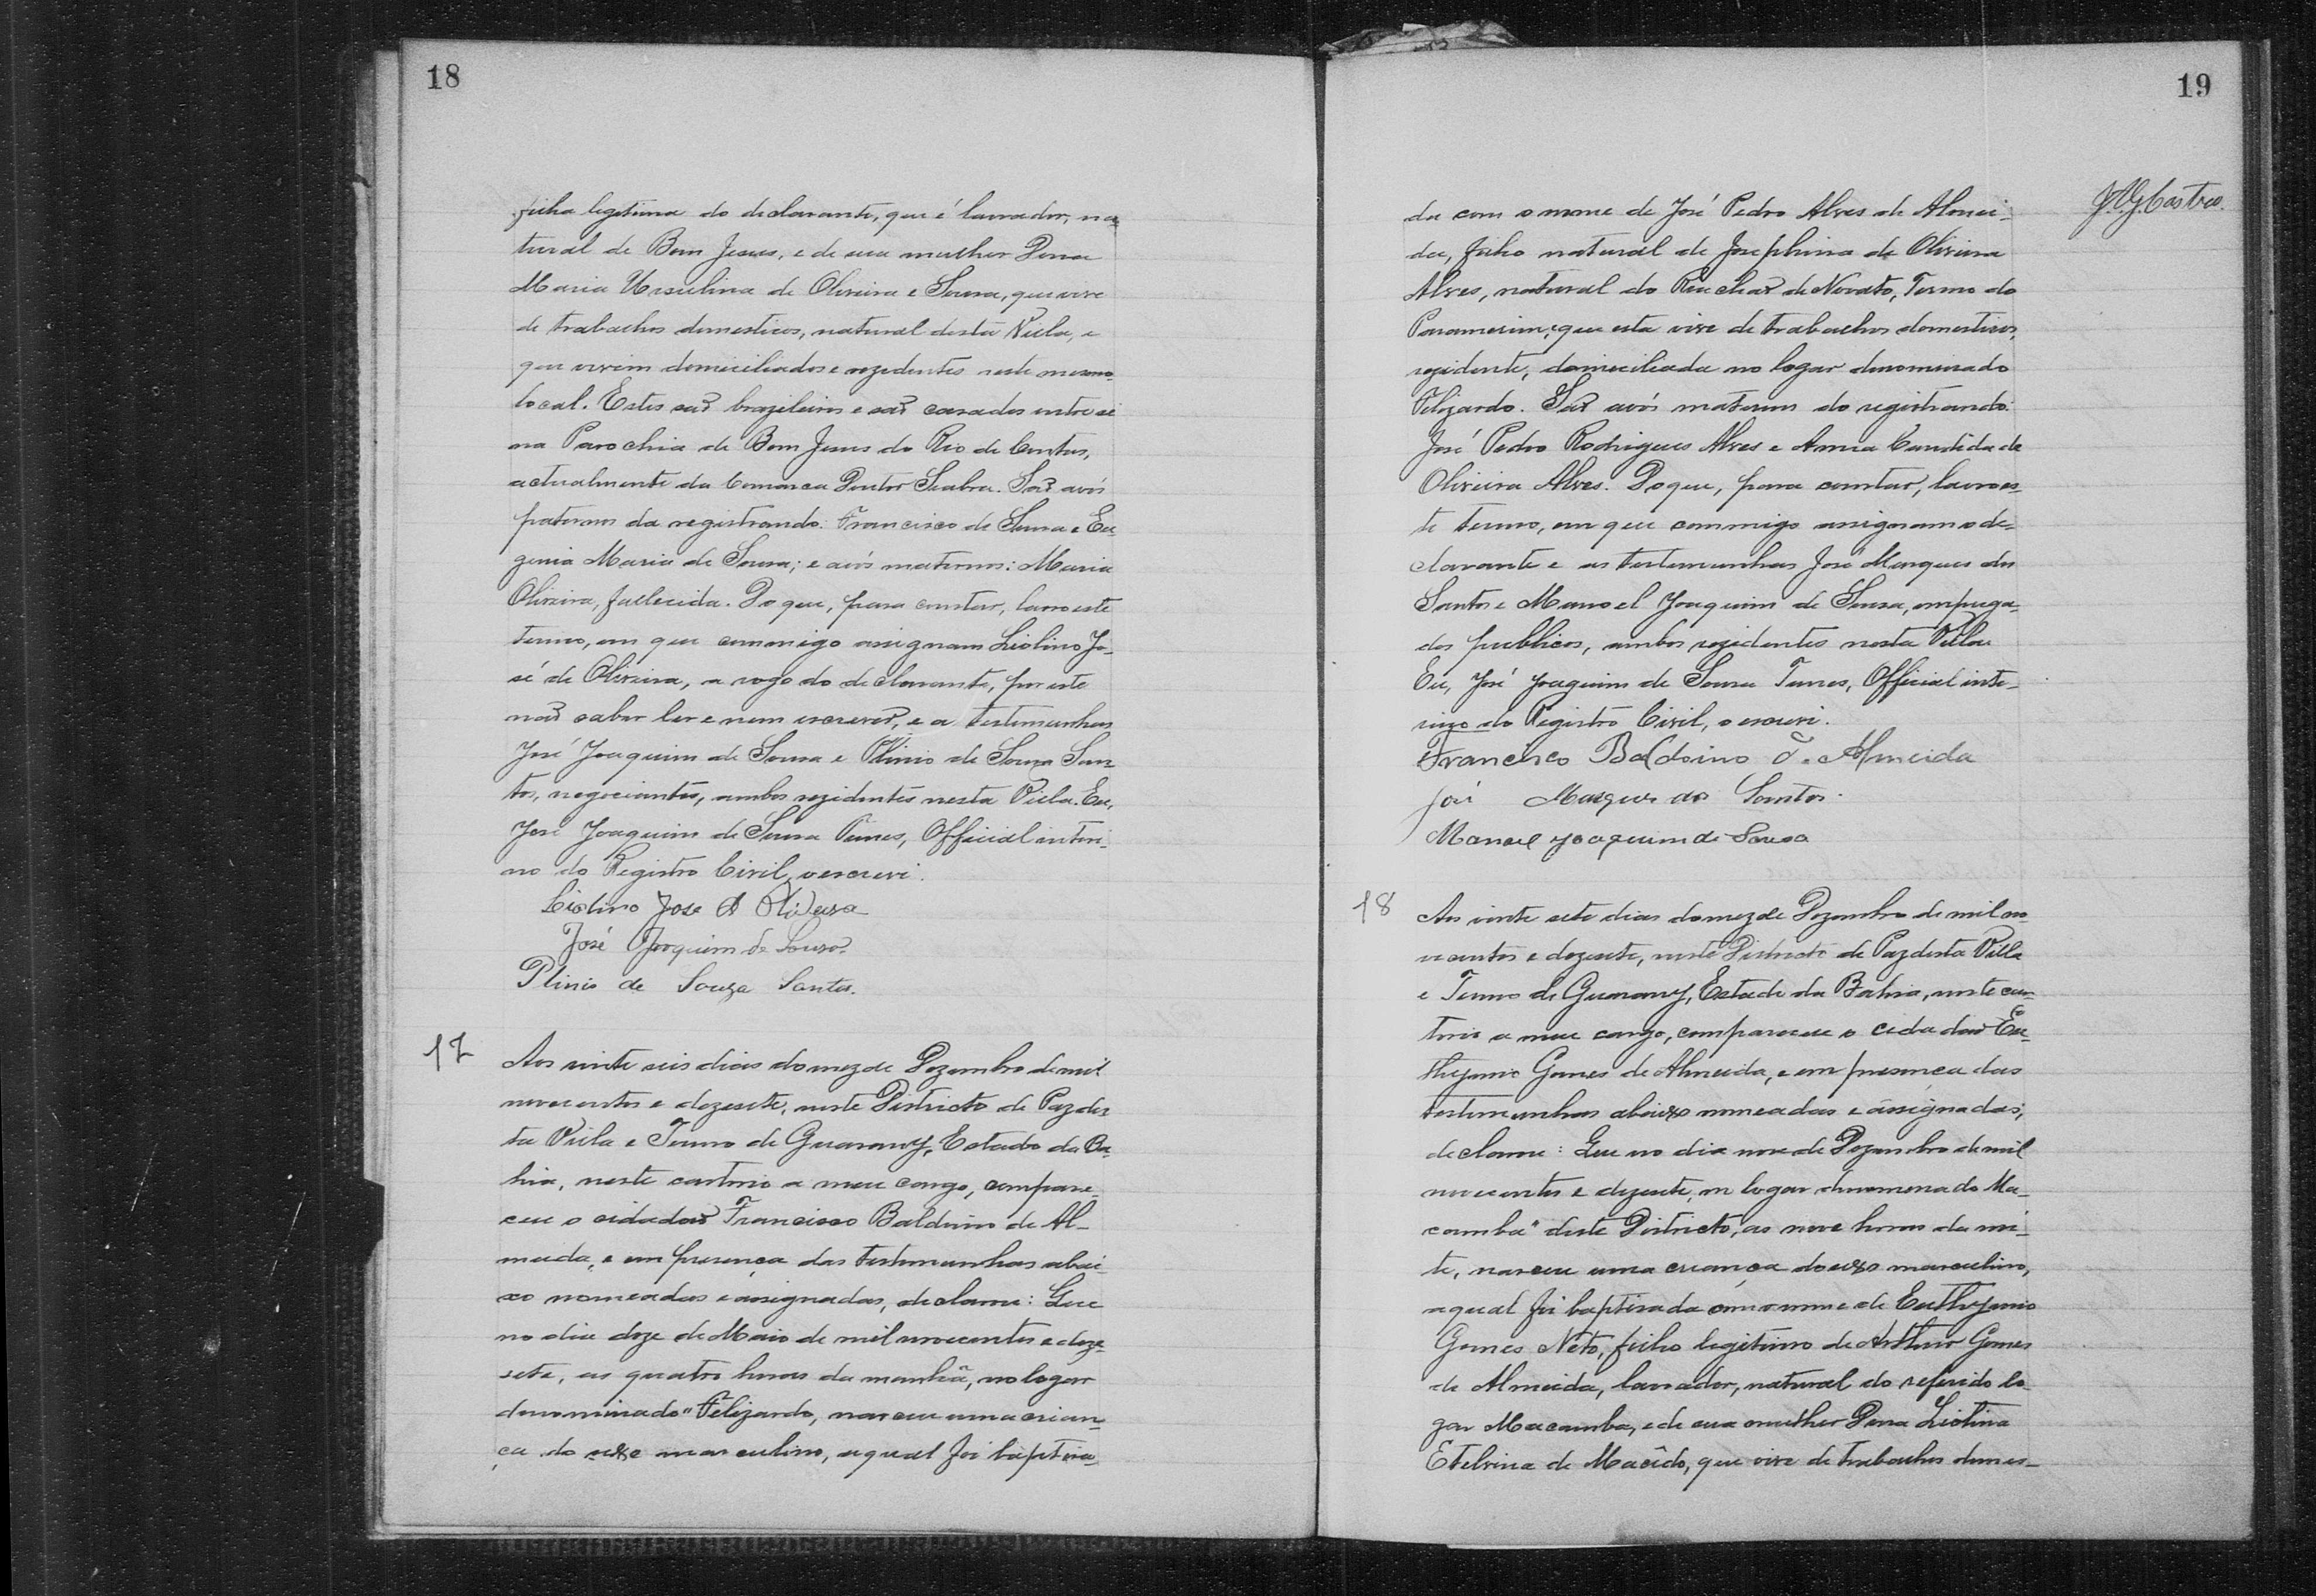 18
filha legitima do declarante, que é lavrador, na-
tural de Bom Jesus, e de sua mulher Dona
Maria Ursulina de Oliveira e Sousa, que vive
de trabalhos domesticos, natural desta Villa, e
que vivem domiciliados e rezidentes neste mesmo
local. Estes são brazileiros e são casados entre si
na Parochia de Bom Jesus do Rio de Contas,
actualmente da Comarca Doutor Seabra. São avós
paternos da registrando: Francisco de Sousa e Eu-
genia Maria de Sousa; e avós maternos: Maria
Oliveira, fallecida. Do que, para constar, lavro este
termo, em que commigo assignam Liolino Jo-
sé de Oliveira, a rogo do declarante, por este
não saber ler e nem escrever, e a testemunhas
José Joaquim de Sousa e Plinio de Souza San-
tos, negociantes, ambos rezidentes nesta Villa. Eu,
José Joaquim de Sousa Tunes, Official interi-
no do Registro Civil, o escrevi.
Liolino Jose d Oliveira
José Joaquim de Souza
Plinio de Souza Santos.
17
Aos vinte seis dias do mez de Dezembro de mil
novecentos e dezesete, neste Districto de Paz des
ta Villa e Termo de Guarany, Estado da Ba-
hia, neste cartorio a meu cargo, compare-
ceu o cidadão Francisco Balduino de Al-
meida, e em presença das testemunhas abai-
xo nomeadas e assignadas, declarou: Que
no dia doze de Maio de mil novecentos e deze-
sete, as quatro horas da manhã, no logar
denominado "Felizardo, nasceu uma crian-
ça do sexo masculino, a qual foi baptisa-
19
J.A.G. Castro.
da com o nome de José Pedro Alves de Almei-
da, filho natural de Josephina de Oliveira
Alves, natural do Riachão de Novato, Termo do
Paramerim, que esta vive de trabalhos domesticos,
rezidente, domiciliada no logar denominado
Felizardo. São avós maternos do registrando:
José Pedro Rodrigues Alves e Anna Candida de
Oliveira Alves. Do que, para constar, lavro es-
te termo, em que commigo assignam o de-
clarante e as testemunhas José Marques dos
Santos e Manoel Joaquim de Sousa, empuga-
dos publicos, ambos rezidentes nesta Villa.
Eu, José Joaquim de Sousa Tunes, Official inte-
rino do Registro Civil, o escrevi.
Francisco Baldoino d. Almeida
José Marques dos Santos.
Manoel Joaquim de Sousa
18
Aos vinte sete dias do mez de Dezembro de mil no-
vecentos e dezesete, neste Districto de Paz desta Villa
e Termo de Guarany, Estado da Bahia, neste car-
torio a meu cargo, compareceu o cidadão Eu-
thymio Gomes de Almeida, e em presença das
testemunhas abaixo nomeadas e assignadas,
declarou: Que no dia nove de Dezembro de mil
novecentos e dezesete, no logar denominado Ma-
camba" deste Districto, as nove horas da noi-
te, nasceu uma criança do sexo masculino,
a qual foi baptisada com o nome de Euthymio
Gomes Neto, filho legitimo de Arthur Gomes
de Almeida, lavrador, natural do referido lo-
gar Macamba, e de sua mulher Dona Liolina
Etelvina de Macêdo, que vive de trabalhos domes-